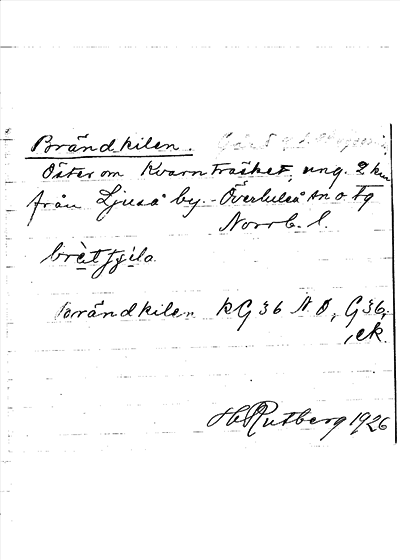 Brändkilen.
Öster om Kvarnträsket, ung. 2 km
från Ljuså by. Överluleå sn o. tg
Norrb. l.
brètʃʃila.
Brändkilen KG 36 N. O, G 36,
ek.
H Rutberg 1926